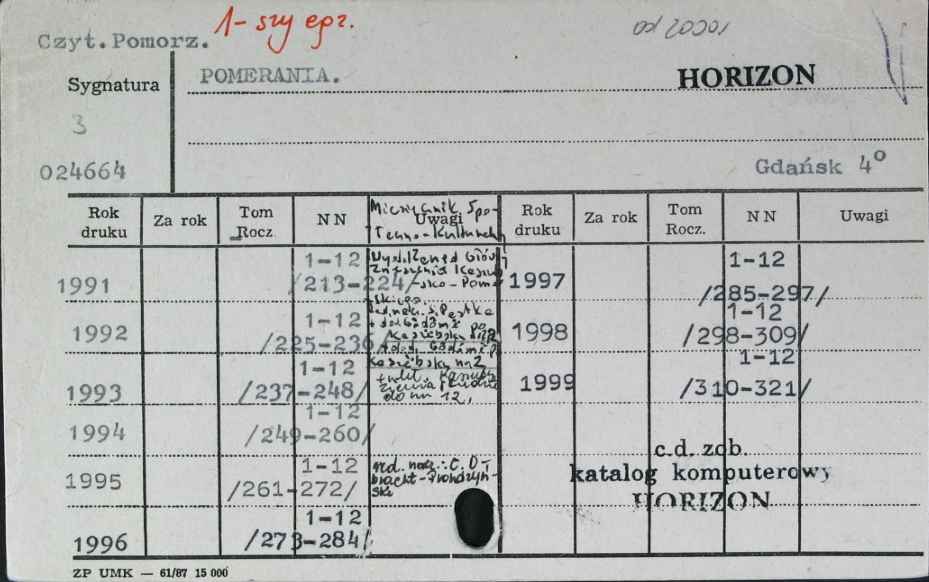 1-szy egz.
Czyt.Pomorz.
Sygnatura
POMERANIA.
HORIZON
3
024664
Gdańsk 4°
Rok druku
Za rok
Tom Rocz.
NN
Miesięcznik Spo-
Uwagi
łeczno-Kulturalny
Rok druku
Za rok
Tom Rocz.
NN
Uwagi
1991 1-12 /213-224/
Wyd. Zarząd Główny
Zrzeszenia Kaszub
sko-Pomo
skiego.
1997 1-12 /285-297/
1992 1-12 /225-236/
S. Pestka
1998 1-12 /298-309/
1993 1-12 /237-248/
nn 2
do nn 12,
1999 1-12 /310-321/
1994 1-12 /249-260/
1995 1-12 /261-272/
red. nacz.: C. O-
bracht-Prondzyń-
ski
c.d. zob.
katalog komputerowy
HORIZON
1996 1-12 /273-284/
ZP UMK — 61/87 15 000